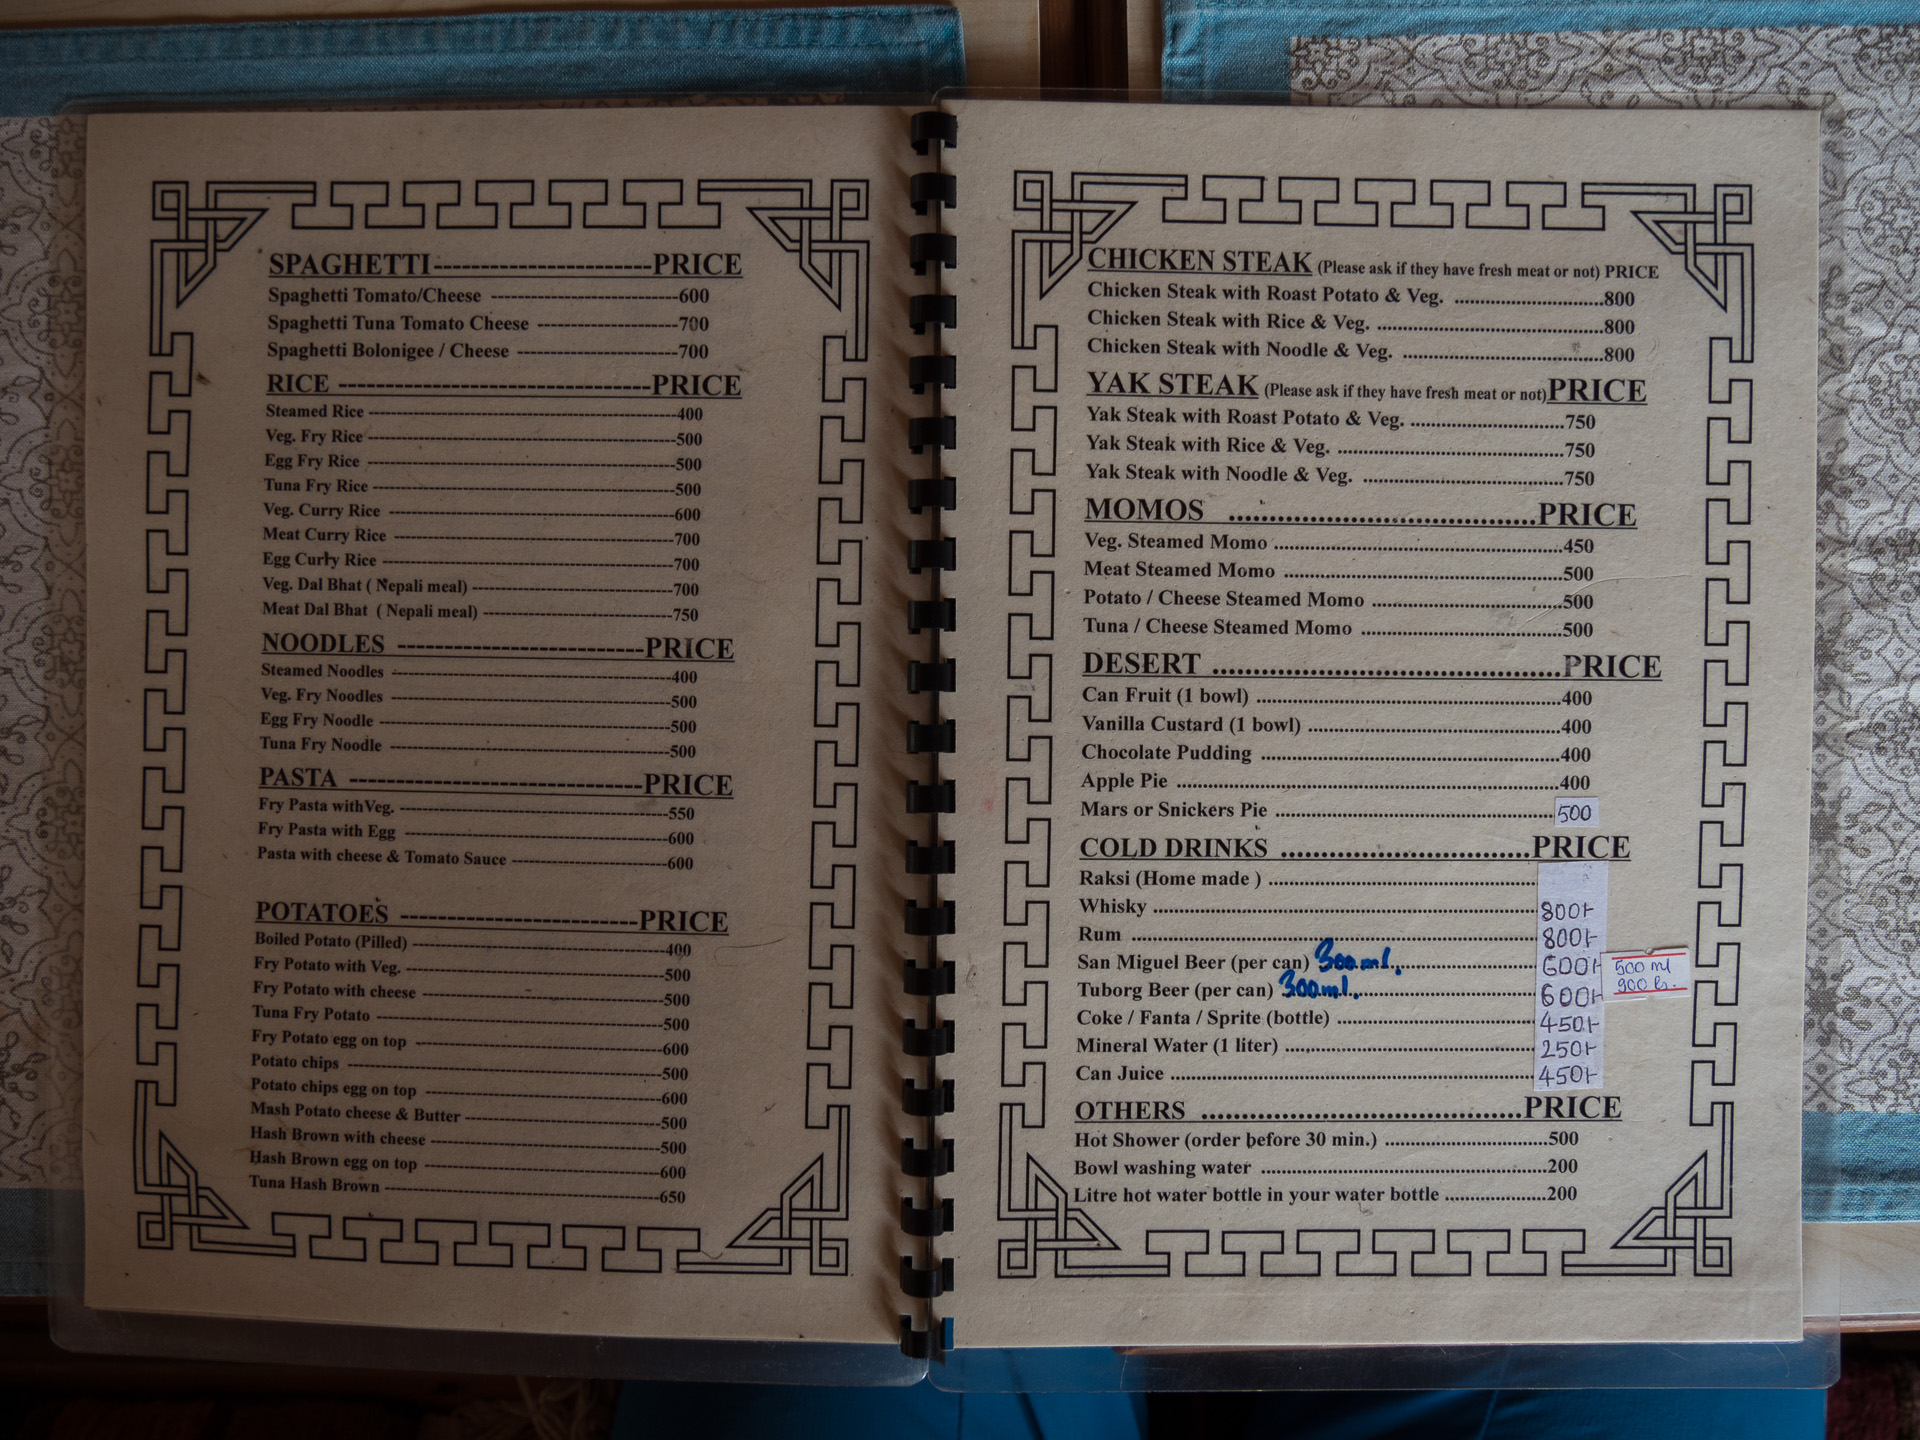 SPAGHETTI-----------------------PRICE
Spaghetti Tomato/Cheese ---------------------------600
Spaghetti Tuna Tomato Cheese --------------------700
Spaghetti Bolonigee / Cheese -----------------------700
RICE ---------------------------------PRICE
Steamed Rice ---------------------------------------------400
Veg. Fry Rice ---------------------------------------------500
Egg Fry Rice ---------------------------------------------500
Tuna Fry Rice --------------------------------------------500
Veg. Curry Rice -----------------------------------------600
Meat Curry Rice ----------------------------------------700
Egg Curry Rice ------------------------------------------700
Veg. Dal Bhat ( Nepali meal) -----------------------------700
Meat Dal Bhat ( Nepali meal) ---------------------------750
NOODLES --------------------------PRICE
Steamed Noodles ----------------------------------------400
Veg. Fry Noodles -----------------------------------------500
Egg Fry Noodle ------------------------------------------500
Tuna Fry Noodle -----------------------------------------500
PASTA -------------------------------PRICE
Fry Pasta withVeg. ---------------------------------------550
Fry Pasta with Egg ---------------------------------------600
Pasta with cheese & Tomato Sauce -----------------------600
POTATOES -------------------------PRICE
Boiled Potato (Pilled) -------------------------------------400
Fry Potato with Veg. ---------------------------------------500
Fry Potato with cheese ------------------------------------500
Tuna Fry Potato ------------------------------------------500
Fry Potato egg on top -------------------------------------600
Potato chips ----------------------------------------------500
Potato chips egg on top -----------------------------------600
Mash Potato cheese & Butter -----------------------------500
Hash Brown with cheese ----------------------------------500
Hash Brown egg on top -----------------------------------600
Tuna Hash Brown ----------------------------------------650
CHICKEN STEAK (Please ask if they have fresh meat or not) PRICE
Chicken Steak with Roast Potato & Veg. ..............................800
Chicken Steak with Rice & Veg. .............................................800
Chicken Steak with Noodle & Veg. ........................................800
YAK STEAK (Please ask if they have fresh meat or not)PRICE
Yak Steak with Roast Potato & Veg. ...............................750
Yak Steak with Rice & Veg. ..............................................750
Yak Steak with Noodle & Veg. .........................................750
MOMOS .......................................PRICE
Veg. Steamed Momo ..........................................................450
Meat Steamed Momo ........................................................500
Potato / Cheese Steamed Momo ......................................500
Tuna / Cheese Steamed Momo ........................................500
DESERT ............................................PRICE
Can Fruit (1 bowl) .............................................................400
Vanilla Custard (1 bowl) ..................................................400
Chocolate Pudding ............................................................400
Apple Pie .............................................................................400
Mars or Snickers Pie .........................................................500
COLD DRINKS ...............................PRICE
Raksi (Home made ) ......................................................
Whisky .............................................................................800/-
Rum .................................................................................800/-
San Miguel Beer (per can) 300 ml. .............................600/- 500 ml
Tuborg Beer (per can) 300 ml. ...................................600/- 900
Coke / Fanta / Sprite (bottle) ........................................450/-
Mineral Water (1 liter) ..................................................250/-
Can Juice .........................................................................450/-
OTHERS ........................................PRICE
Hot Shower (order before 30 min.) .................................500
Bowl washing water .........................................................200
Litre hot water bottle in your water bottle ....................200